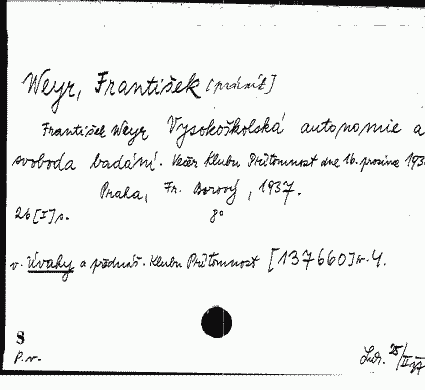 Weyr, František [právník]
František Weyr Vysokoškolská autonomie a
svoboda badání. Večer Klubu Přítomnost dne 16. prosince 193
Praha, Fr. Borový, 1937.
26 [I] s. 8°
v. Úvahy a přednáš. Klubu Přítomnost [137660] sv. 4.
8
P. v.